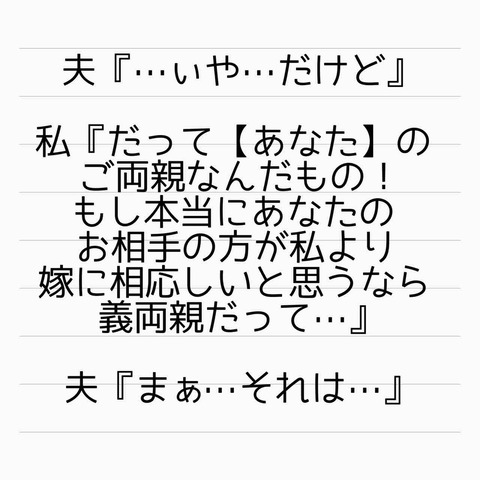 夫『…ぃや…だけど』
私『だって【あなた】の
ご両親なんだもの！
もし本当にあなたの
お相手の方が私より
嫁に相応しいと思うなら
義両親だって…』
夫『まぁ…それは…』